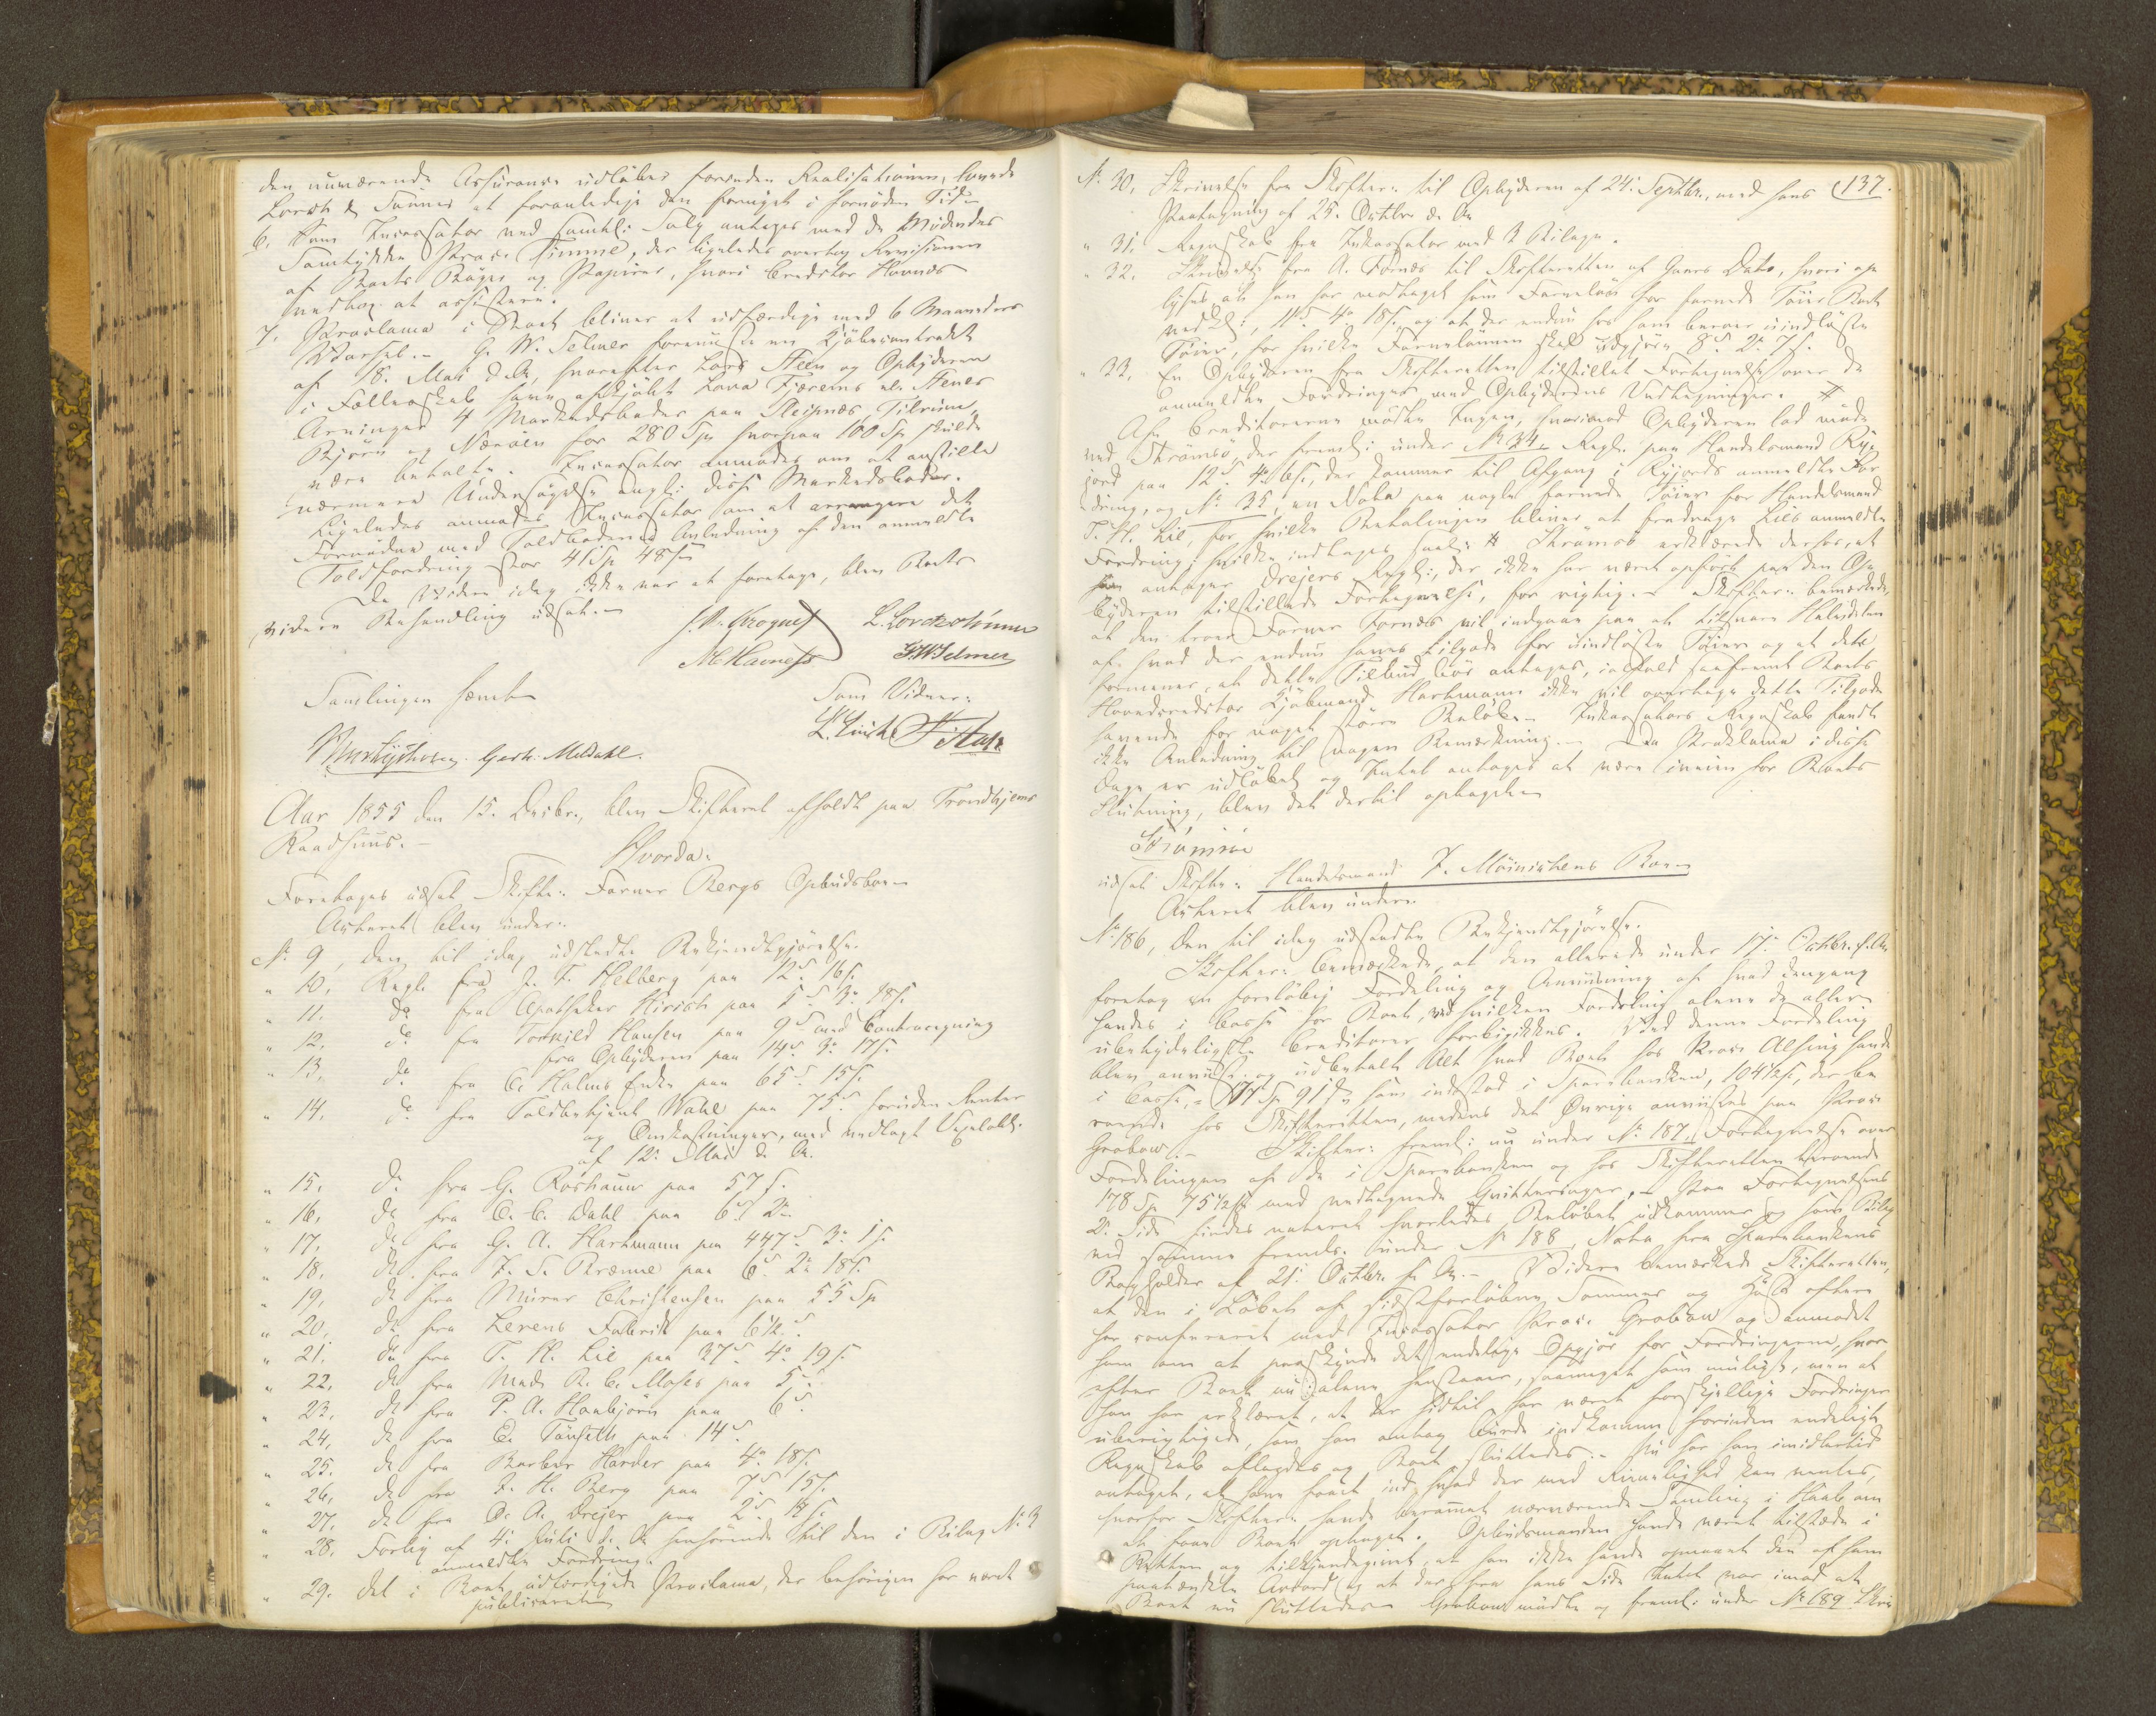 den nuværende Assurance udløber forinden Realisationen, burde
Lorck & Sønner at foranledige den fornyet i fornøden Tid.
6. Som Incassator ved samtl: Salg antages med de Mødendes
Samtykke Proc. Finne, der ligeledes overtog Revisionen
af Boets Bøger og Papirer, hvori Creditor Havnæs
vedtog at assistere.
7. Proclama i Boet bliver at udfærdige med 6 Maaneders
Varsel. – G. W. Selmer foreviste en Kjøbecontrakt
af 18. Mai d. A., hvorefter Lars Steen og Opbyderen
i Fælleskab have afkjøbt Lava Fjærems els Stenes
Arvinger 4 Markedsboder paa Kleipnæs, Tilrum,
Bjørn og Nærøen for 280 Sp hvorpaa 100 Sp skulde
være betalte. Incassator anmodes om at anstille
nærmere Undersøgelse angl: disse Markedsboder.
Ligeledes anmodes Incassator om at arrangere det
Fornødne med Toldboden i Anledning af den anmeldte
Toldfordring stor 41 Sp 48 s.
Da Videre idag ikke var at foretage, blev Boets
videre Behandling udsat. –
J. N. Krogness L. Lorck & Sønner
M. Havness G. W. Selmer
Samlingen hævet
Som Vidner:
Gerh. Meldahl.
Aar 1855 den 15. Decbr., blev Skifteret afholdt paa Trondhjems
Raadhuus. –
Hvorda:
Foretages udsat Skifte: Farver Bergs Opbudsboe. –
Acteret blev under:
No 9, den til idag udstedte Bekjendtgjørelse.
" 10, Regl. fra J. F. Helberg paa 12 S. 16 s.
" 11. do fra Apotheker Hirsch paa 5 S. 3 o 18 s.
" 12, do fra Torkild Hansen paa 9 S. med Contraregning
fra Opbyderen paa 14 S. 3 o 17 s.
" 13, do fra C. Holms Enke paa 65 S. 15 s.
" 14, do fra Toldbetjent Wahl paa 75 S. foruden Renter
og Omkostninger, med vedlagt Vexelobl.
af 12. Mai d. A.
" 15, do fra G. Roshauw paa 57 s.
" 16, do fra C. C. Dahl paa 6 S. 2 o
" 17, do fra G. A. Hartmann paa 447 S. 3 o 1 s.
" 18, do fra F. S. Brænne paa 6 S. 2 o 18 s.
" 19, do fra Murer Christensen paa 55 Sp
" 20, do fra Lerens Fabrik paa 6½ S.
" 21, do fra T. H. Lie paa 37 S. 4 o 19 s.
" 22, do fra Mad. R. C. Moses paa 5 S.
" 23, do fra P. A. Haabjørn paa 6 S.
" 24, do fra E. Tønseth paa 14 S.
" 25, do fra Barber Harder paa 4 o 18 s.
" 26, do fra J. H. Berg paa 7 S. 15 s.
" 27, do fra O. A. Drejer paa 2 S. 14 s.
" 28. Forlig af 4. Juli d. A. henhørende til den i Bilag No 3
anmeldte Fordring.
" 29. det i Boet udfærdigede Proclama, der behørigen har været
publiceret.
137.
No 30, Skrivelse fra Skifter: til Opbyderen af 24. Septbr., med hans
Paategning af 25. Octbr. d. A.
" 31, Regnskab fra Inkassator med 3 Bilage.
" 32, Skrivelse fra A. Fornæs til Skifteretten af Gaars Dato, hvori op-
lyses, at han har modtaget som Farveløn for farvede Tøier Boet
vedk:, 11 S. 4 o 18 s., og at der endnu hos ham beroer uindløste
Tøier, for hvilke Farvelønnen skal udgjøre 8 S. 2 o 7 s.
" 33, En Opbyderen fra Skifteretten tilstillet Fortegnelse over de
anmeldte Fordringer med Opbyderens Vedtegninger. #
Af Creditorerne mødte Ingen, hvorimod Opbyderen lod møde
ved Strømsø, der freml: under No 34. Regl. paa Handelsmand Ry-
jord paa 12 S. 4 o 6 s., der kommer til Afgang i Ryjords anmeldte For-
dring, og No 35, en Nota paa nogle farvede Tøier for Handelsmand
T. H. Lie, for hvilke Betalingen bliver at fradrage Lies anmeldte
Fordring: hvilke indtages saal: # Strømsø erklærede derhos, at
han antager Drejers Regl:, der ikke har været opført paa den Op-
byderen tilstillede Fortegnelse, for rigtig. – Skifter: bemærkede,
at den troer Farver Fornæs vil indgaae paa at tilsvare Halvdelen
af hvad der endnu haves tilgode for uindløste Tøier og at dette
formener, at dette Tilbud bør antages, ialfald saafremt Boets
Hovedcreditor Kjøbmand Hartmann ikke vil overtage dette Tilgode-
havende for noget større Beløb. – Inkassators Regnskab fandt
ikke Anledning til nogen Bemærkning. – Da Proklama i disse
Dage er udløbet og Intet antages at være iveien for Boets
Slutning, blev det dertil optaget. –
Strømsøe
udsat Skifte: Handelsmand F. Møinichens Boe. –
Acteret blev under:
No 186, den til idag udstedte Bekjendtgjørelse.
Skifter: bemærkede, at den allerede under 17. Octbr. f. A.
foretog en foreløbig Fordeling og Anviisning af hvad dengang
havdes i Cassa for Boet, ved hvilken Fordeling alene de aller-
ubetydeligste Creditorer forbigikkes. Ved denne Fordeling
blev anviist og udbetalt Alt hvad Boet hos Proc. Alsing havde
i Cassa, – 77 Sp 91 s. som indestod i Sparebanken, 104½ s., der be-
roede hos Skifteretten, medens det Øvrige anvistes paa Proc.
Grabow. – Skifter: freml: nu under No 187, Fortegnelse over
Fordelingen af de i Sparebanken og hos Skifteretten beroende
178 Sp 75½ s. med vedtegnede Qvitteringer. – Paa Fortegnelsens
2. Side findes noteret hvorledes Beløbet udkommer og som Bilag
ved samme freml. under No 188, Nota fra Sparebankens
Bogholder af 21. Octbr. f. A. – Videre bemærkede Skifteretten,
at den i Løbet af sidstforløbne Sommer og Høst oftere
har confereret med Incassator Proc. Grabow og anmodet
ham om at paaskynde det endelige Opgjør for Fordringerne, hvor-
efter Boet nu alene henstaaer, saameget som muligt, men at
han har erklæret, at der hidtil har været forskjellige Fordringer
uberigtigede, som han antog burde indkomme forinden endeligt
Regnskab aflagdes og Boet sluttedes. – Nu har han imidlertid
antaget, at have faaet ind, hvad der med Rimelighed kan ventes,
hvorfor Skifter: havde berammet nærværende Samling i Haab om
at faae Boet optaget. Opbudsmanden havde været tilstede i
Retten og tilkjendegivet, at han ikke havde opnaaet den af ham
paatænkte Accord og at der fra hans Side Intet var imod at
Boet nu sluttedes. Grabow mødte og freml: under No 189 Skri-